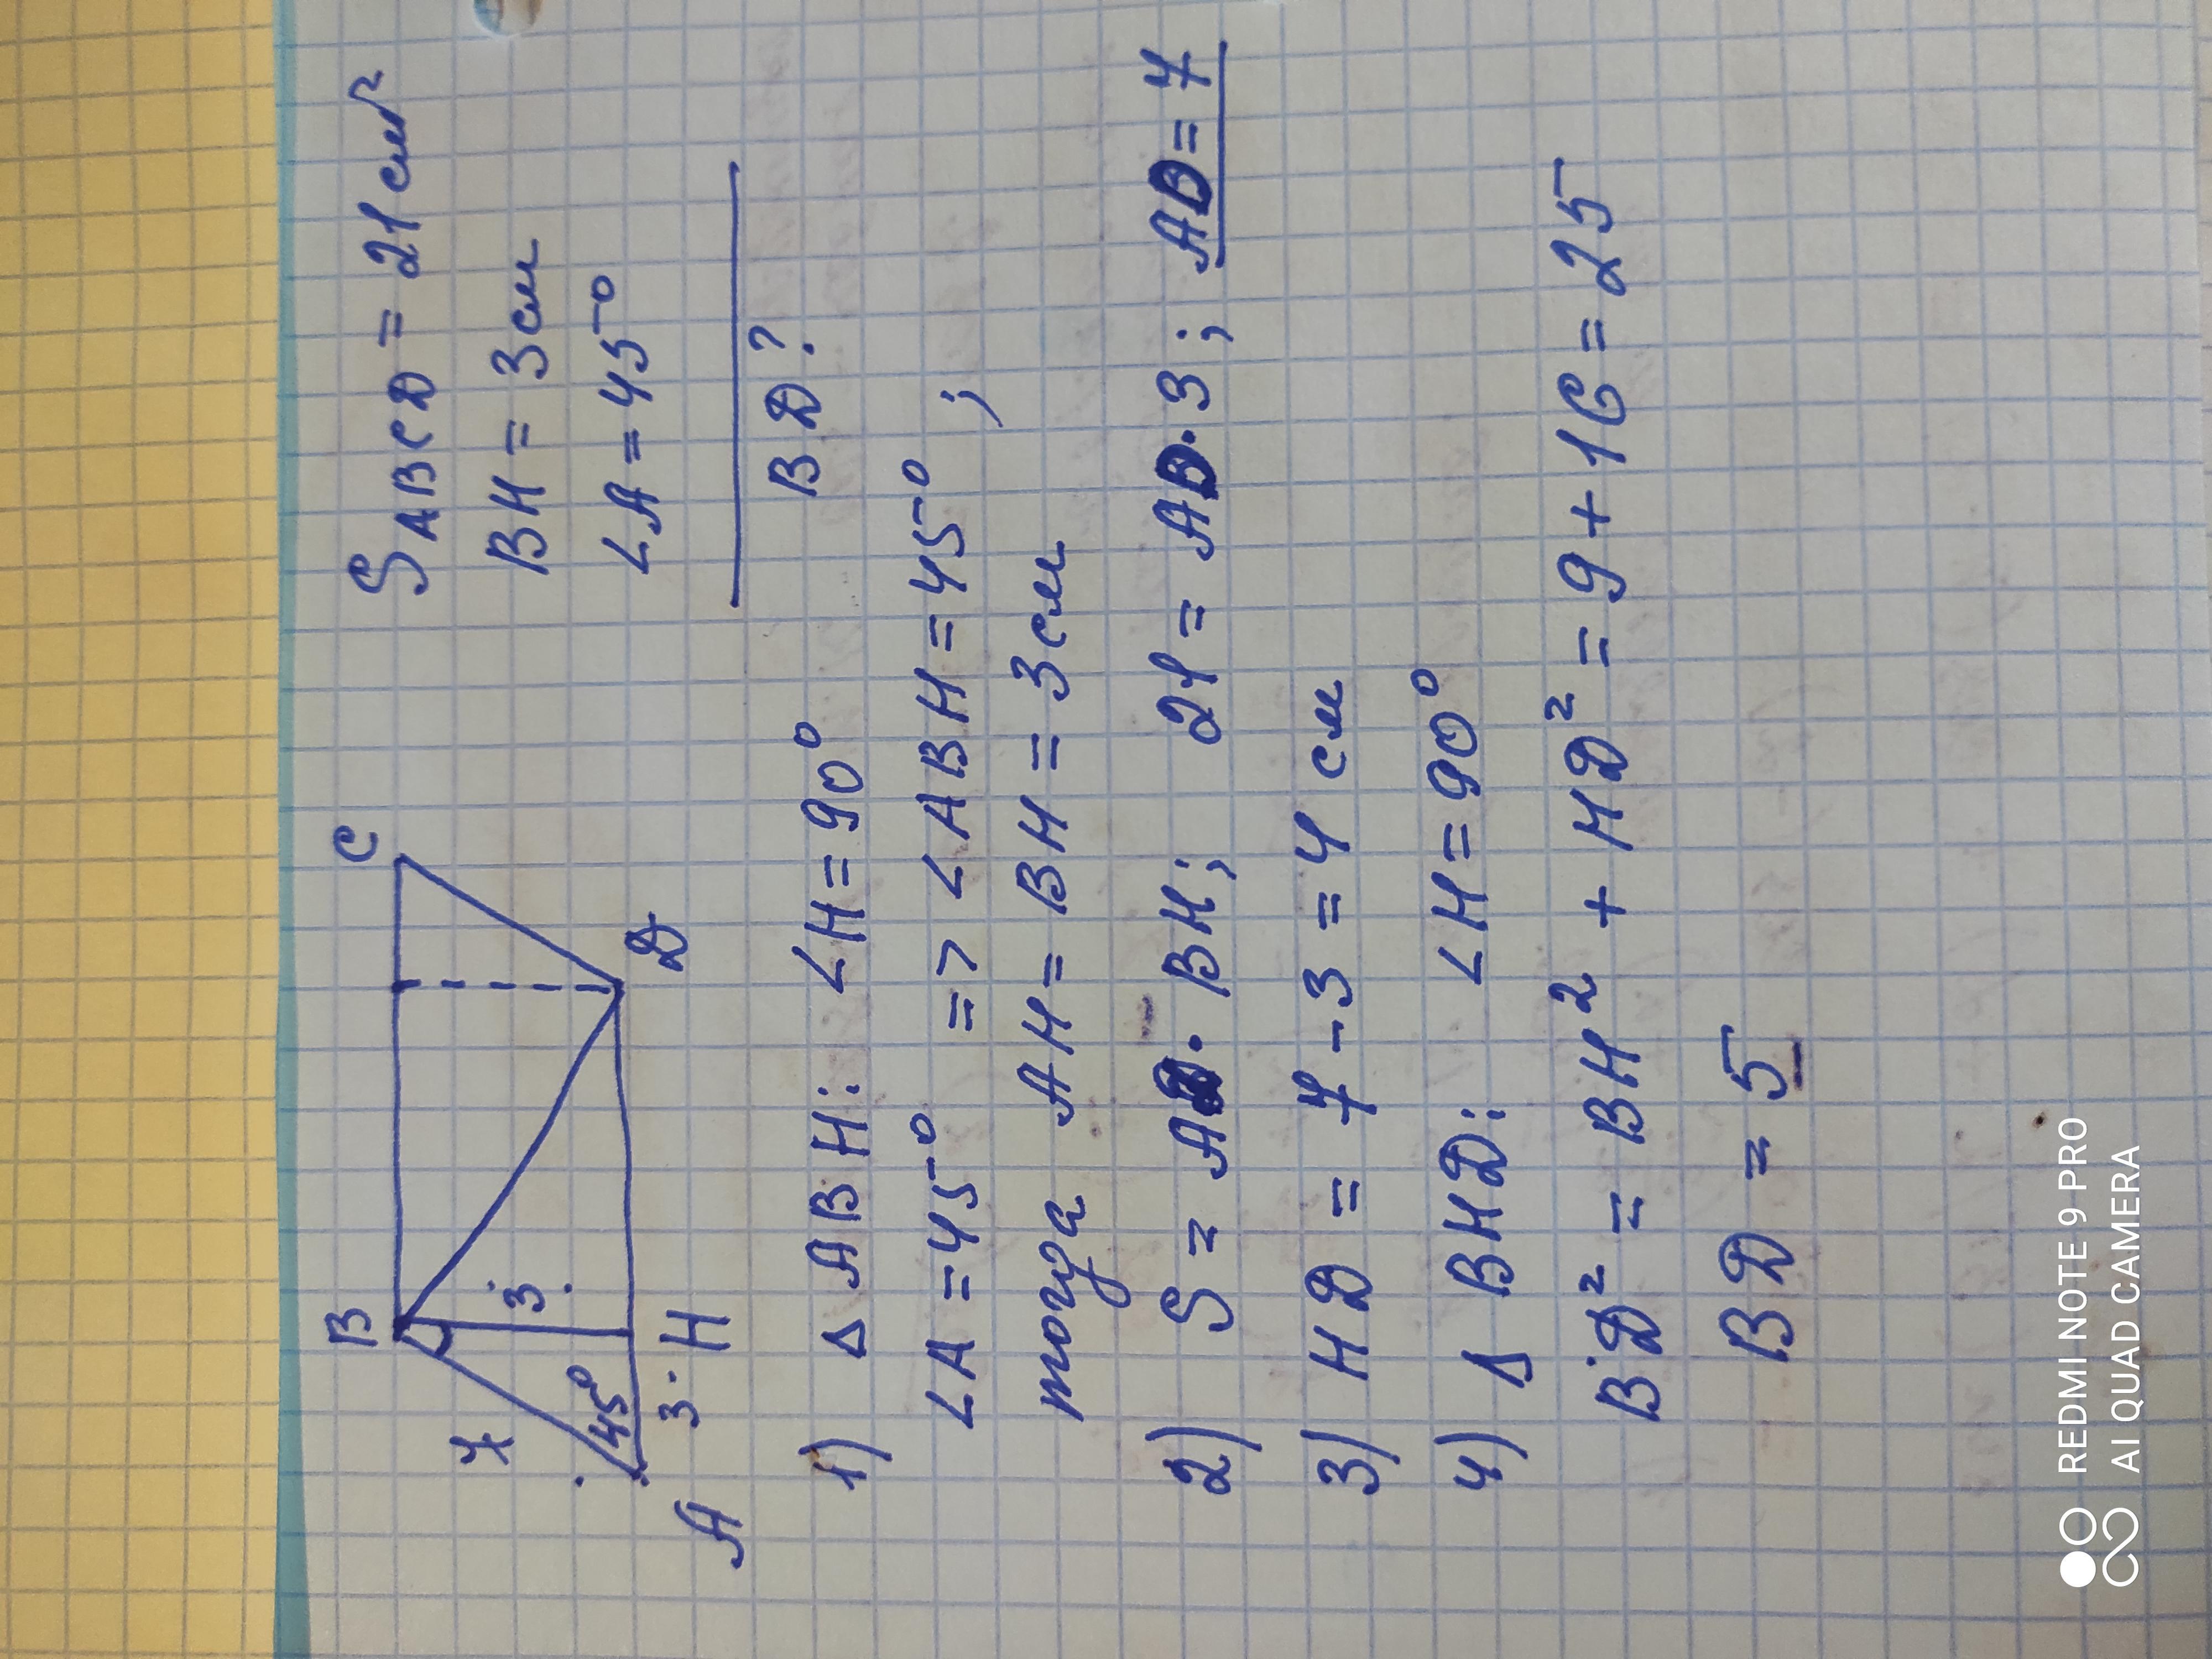 B C
7 3
45°
A 3 H D
S ABCD = 21 см²
BH = 3 см
∠A = 45°
BD?
1) Δ ABH: ∠H = 90°
∠A = 45° => ∠ABH = 45° ;
тогда AH = BH = 3 см
2) S = AD · BH; 21 = AD · 3; AD = 7
3) HD = 7 - 3 = 4 см
4) Δ BHD: ∠H = 90°
BD² = BH² + HD² = 9 + 16 = 25
BD = 5
REDMI NOTE 9 PRO
AI QUAD CAMERA